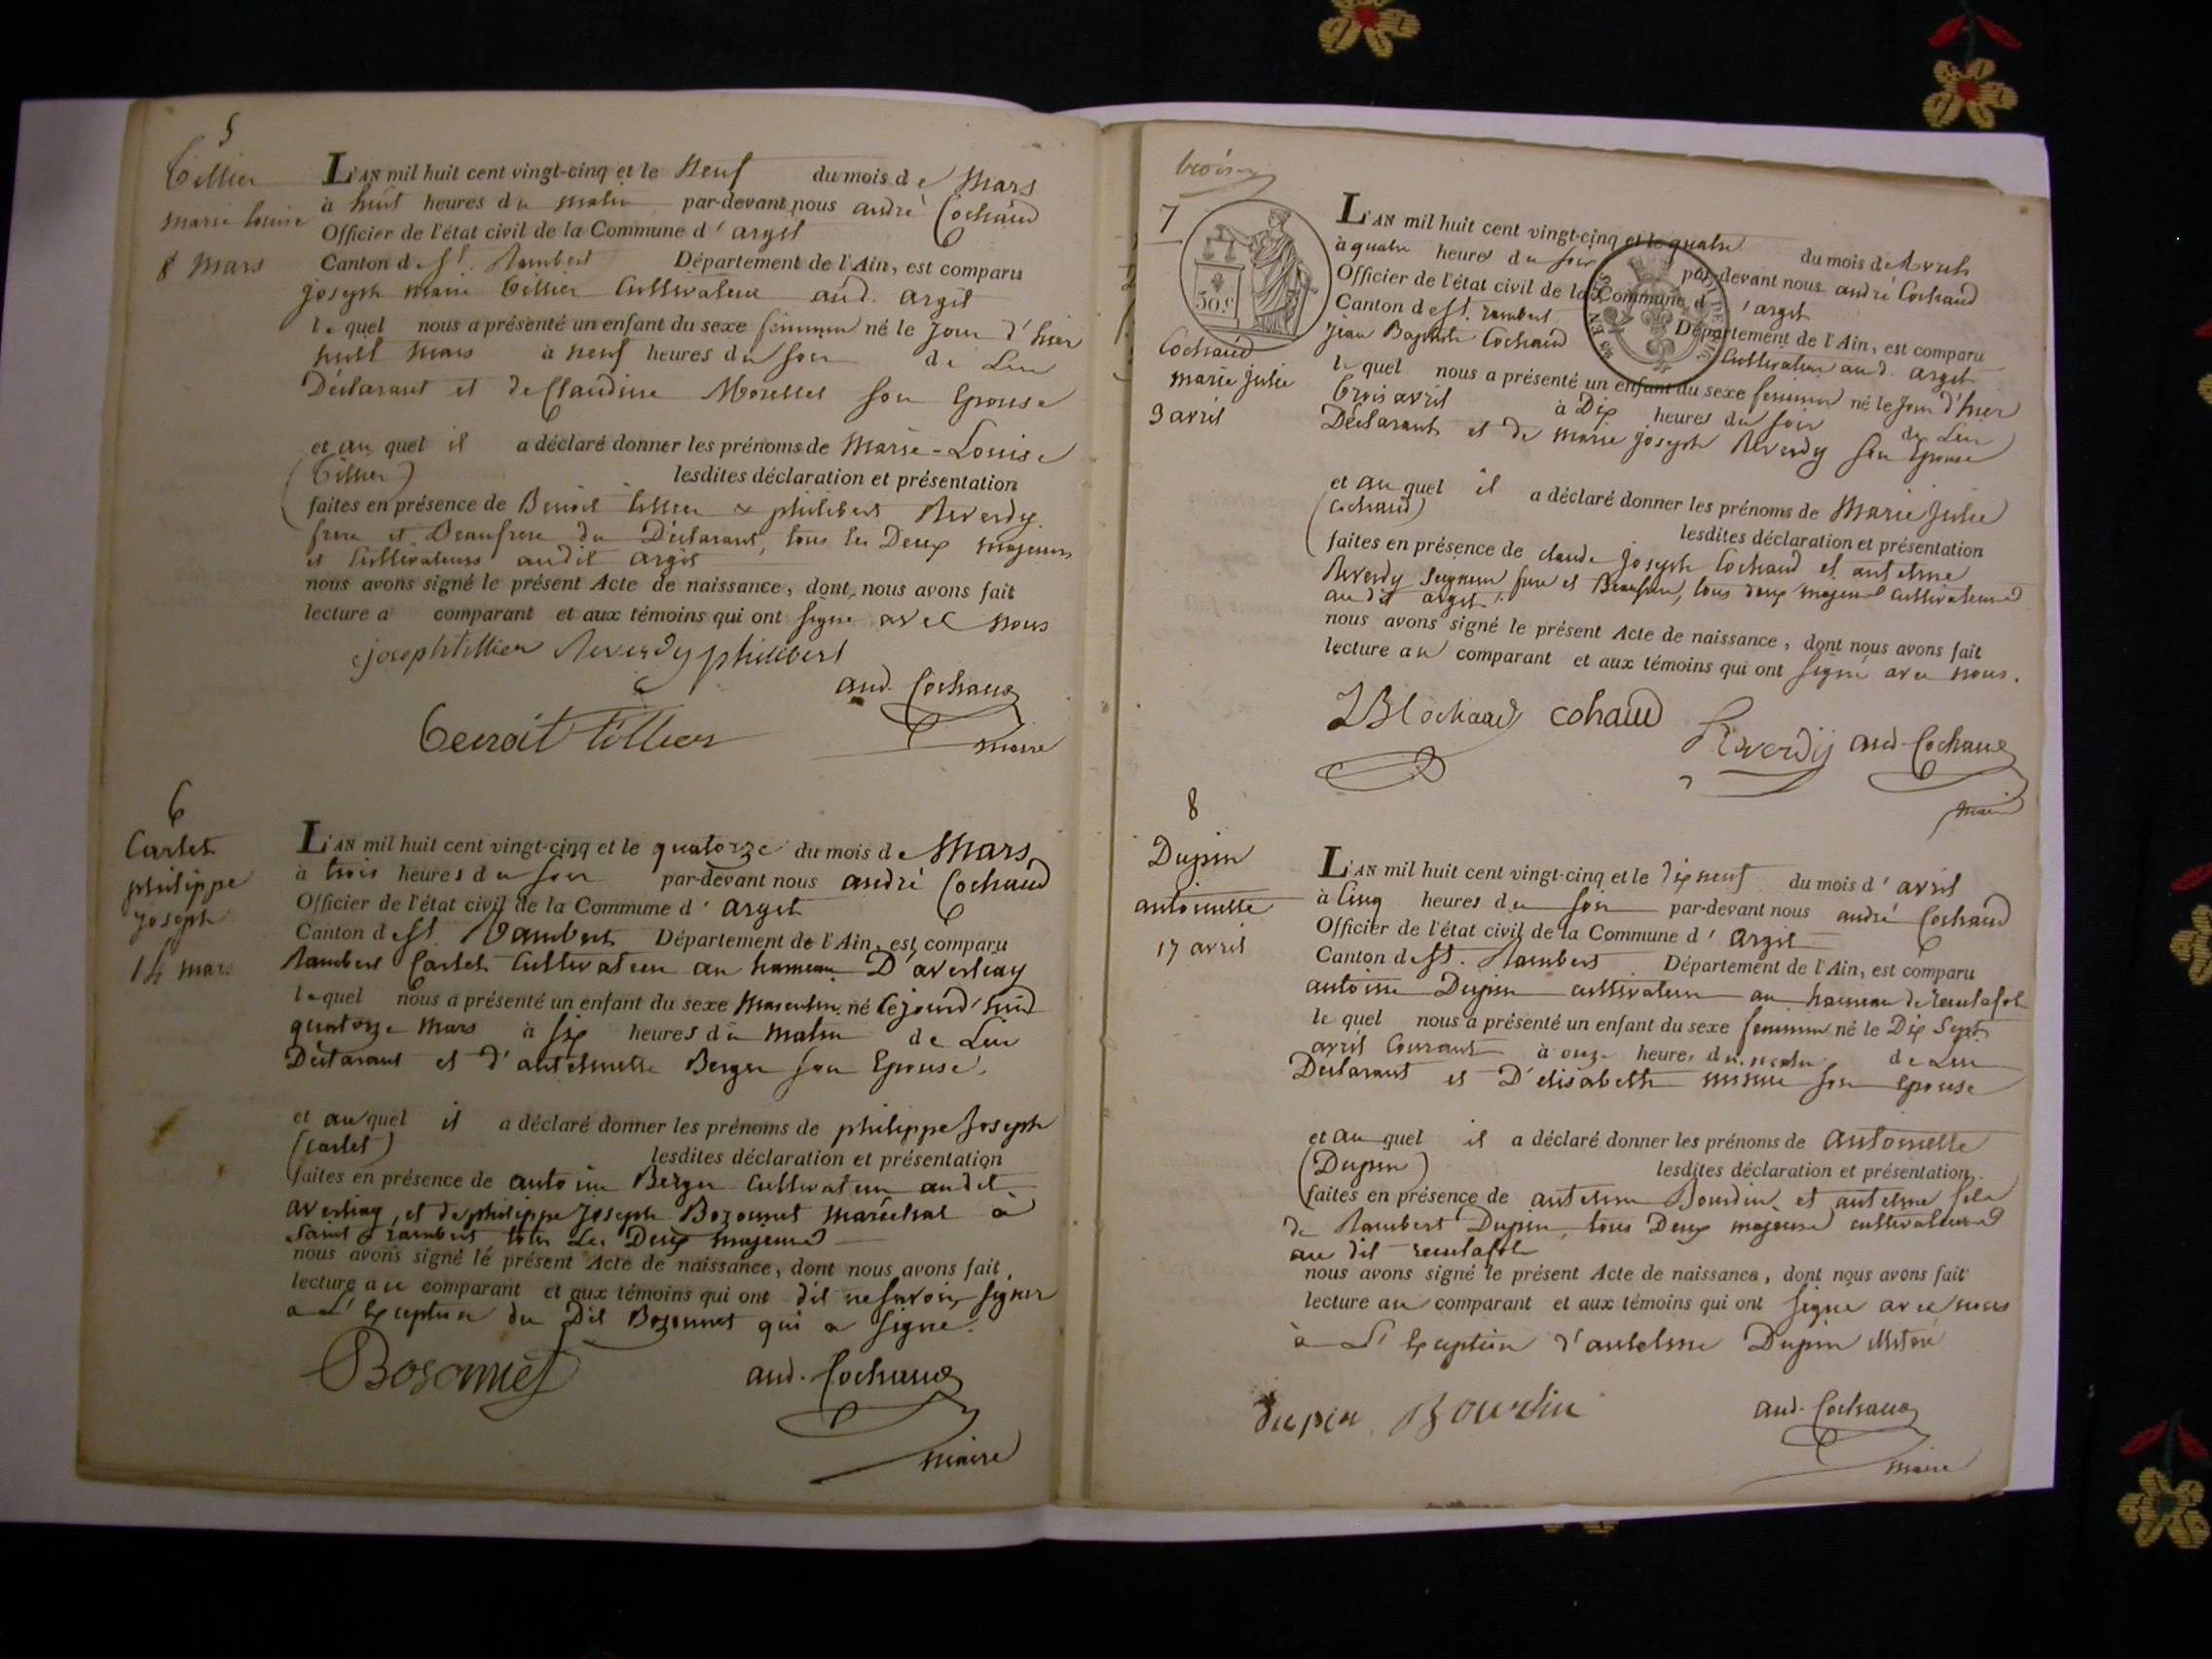 5
Tillier
marie Louise
8 Mars
L'AN mil huit cent vingt-cinq et le Neuf du mois de Mars
à huit heures du matin par-devant nous andré Cochaud
Officier de l'état civil de la Commune d'argit
Canton de St. Rambert Département de l'Ain, est comparu
joseph marie Tillier Cultivateur aud. argit
le quel nous a présenté un enfant du sexe feminin né le Jour d'hier
huit mars à neuf heures du soir de Lui
Déclarant et de Claudine Morellet son Epouse
et au quel il a déclaré donner les prénoms de Marie-Louise
(Tillier) lesdites déclaration et présentation
faites en présence de Benoit tillier & philibert Reverdy
frere et Beaufrere du Déclarant, tous les Deux majeurs
et Cultivateurs audit argit
nous avons signé le présent Acte de naissance, dont nous avons fait
lecture a comparant et aux témoins qui ont signé avec nous
joseph tillier Reverdy philibert
and. Cochaud
Benoit tillier
maire
6
Carlet
philippe
joseph
14 mars
L'AN mil huit cent vingt-cinq et le quatorze du mois de Mars
à trois heures du soir par-devant nous andré Cochaud
Officier de l'état civil de la Commune d'argit
Canton de St. Rambert Département de l'Ain, est comparu
Rambert Carlet Cultivateur au hameau D'averliay
le quel nous a présenté un enfant du sexe Masculin né cejourd'hui
quatorze Mars à six heures du matin de Lui
Déclarant et d'antelmette Berger son Epouse.
et au quel il a déclaré donner les prénoms de philippe Joseph
(Carlet) lesdites déclaration et présentation
faites en présence de antoine Berger Cultivateur audit
averliay, et de philippe Joseph Bozonnet maréchal à
Saint rambert tous Les Deux majeurs
nous avons signé le présent Acte de naissance, dont nous avons fait
lecture au comparant et aux témoins qui ont dit ne savoir signer
a L'Exception du Dit Bozonnet qui a signé.
Bosonnet
and. Cochaud
maire
trois
7
50.c
Cochaud
marie julie
3 avril
L'AN mil huit cent vingt-cinq et le quatre du mois d'Avril
à quatre heures du soir par-devant nous andré Cochaud
Officier de l'état civil de la Commune d'argit
Canton de St. rambert Département de l'Ain, est comparu
Jean Baptiste Cochaud Cultivateur aud. argit
le quel nous a présenté un enfant du sexe feminin né le Jour d'hier
trois avril à Dix heures du soir de Lui
Déclarant et de marie joseph Reverdy son Epouse
et au quel il a déclaré donner les prénoms de Marie Julie
(Cochaud) lesdites déclaration et présentation
faites en présence de claude joseph Cochaud et antelme
Reverdy frere et Beaufrere, tous deux majeurs cultivateurs
au dit argit
nous avons signé le présent Acte de naissance, dont nous avons fait
lecture au comparant et aux témoins qui ont signé avec nous.
JB Cochaud cohaud
Reverdy and. Cochaud
maire
8
Dupin
antoinette
17 avril
L'AN mil huit cent vingt-cinq et le dix neuf du mois d'avril
à Cinq heures du soir par-devant nous andré Cochaud
Officier de l'état civil de la Commune d'argit
Canton de St. Rambert Département de l'Ain, est comparu
antoine Dupin cultivateur au hameau de reculafol
le quel nous a présenté un enfant du sexe feminin né le Dix Sept
avril Courant à onze heures du matin de Lui
Déclarant et D'elisabeth son epouse
et au quel il a déclaré donner les prénoms de antoinette
(Dupin) lesdites déclaration et présentation
faites en présence de antelme Bourdin et antelme fils
de Rambert Dupin, tous Deux majeurs cultivateurs
au dit reculafol
nous avons signé le présent Acte de naissance, dont nous avons fait
lecture au comparant et aux témoins qui ont signé avec nous
à L'Exception d'antelme Dupin illitéré
dupin Bourdin
and. Cochaud
maire